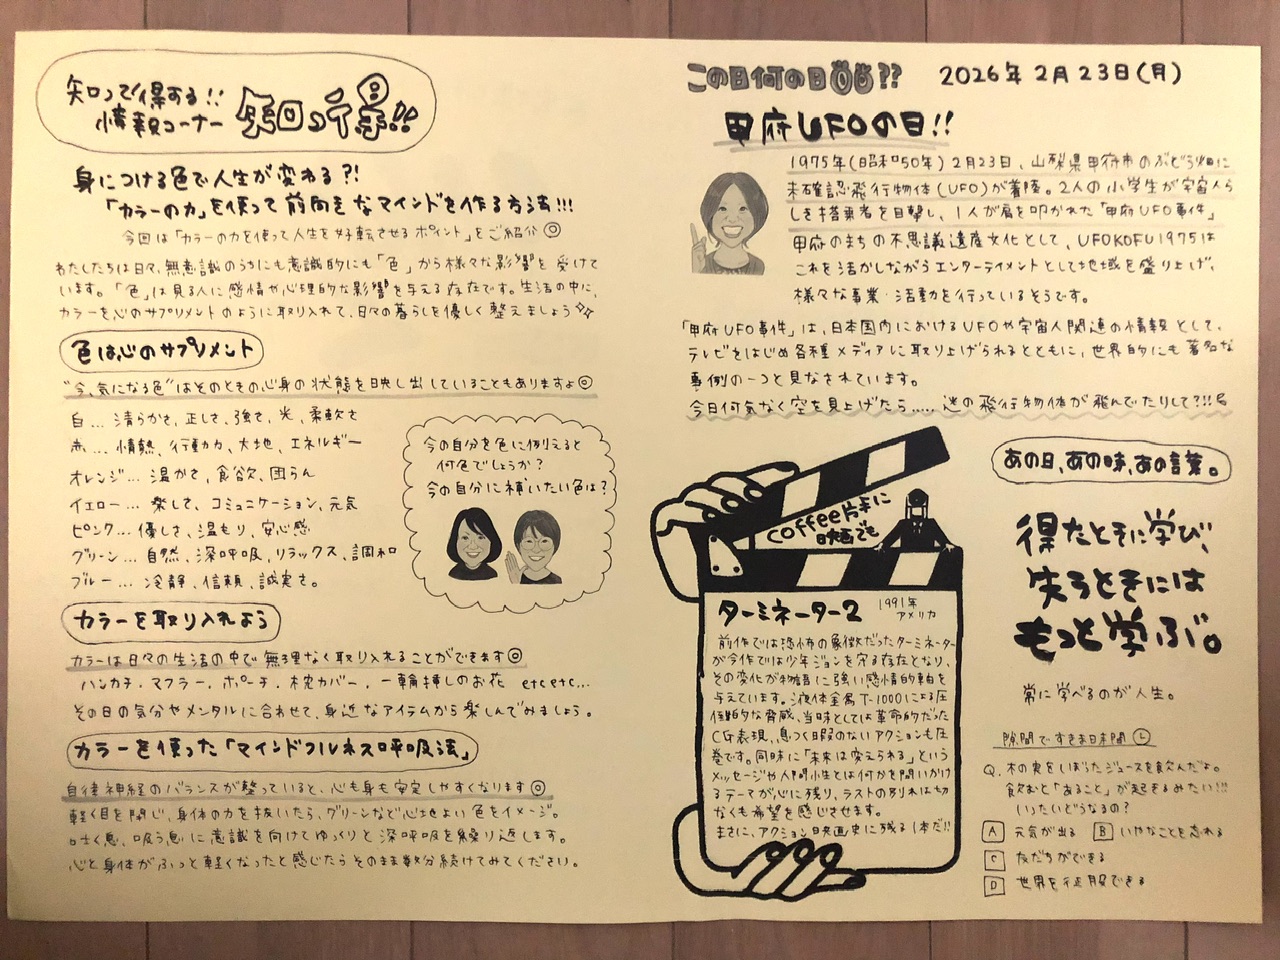 知って得する!!
情報コーナー 知っ得!!
身につける色で人生が変わる?!
「カラーの力」を使って前向きなマインドを作る方法!!!
今回は「カラーの力を使って人生を好転させるポイント」をご紹介◎
わたしたちは日々、無意識のうちにも意識的にも「色」から様々な影響を受けて
います。「色」は見る人に感情や心理的な影響を与える存在です。生活の中に、
カラーを心のサプリメントのように取り入れて、日々の暮らしを優しく整えましょう
色は心のサプリメント
"今、気になる色"はそのときの心身の状態を映し出していることもありますよ◎
白… 清らかさ、正しさ、強さ、光、柔軟さ
赤… 情熱、行動力、大地、エネルギー
オレンジ… 温かさ、食欲、団らん
イエロー… 楽しさ、コミュニケーション、元気
ピンク… 優しさ、温もり、安心感
グリーン… 自然、深呼吸、リラックス、調和
ブルー… 冷静、信頼、誠実さ。
今の自分を色に例えると
何色でしょうか?
今の自分に補いたい色は?
カラーを取り入れよう
カラーは日々の生活の中で無理なく取り入れることができます◎
ハンカチ・マフラー・ポーチ・枕カバー、一輪挿しのお花 etc etc...
その日の気分やメンタルに合わせて、身近なアイテムから楽しんでみましょう。
カラーを使った「マインドフルネス呼吸法」
自律神経のバランスが整っていると、心も身も安定しやすくなります◎
軽く目を閉じ、身体の力を抜いたら、グリーンなど心地よい色をイメージ。
吐く息、吸う息に意識を向けてゆっくりと深呼吸を繰り返します。
心と身体がふっと軽くなったと感じたらそのまま数分続けてみてください。
この日何の日??
2026年2月23日(月)
甲府UFOの日!!
1975年(昭和50年)2月23日、山梨県甲府市のぶどう畑に
未確認飛行物体(UFO)が着陸。2人の小学生が宇宙人ら
しき搭乗者を目撃し、1人が肩を叩かれた「甲府UFO事件」
甲府のまちの不思議遺産文化として、UFOKOFU1975は
これを活かしながらエンターテイメントとして地域を盛り上げ、
様々な事業・活動を行っているそうです。
「甲府UFO事件」は、日本国内におけるUFOや宇宙人関連の情報として、
テレビをはじめ各種メディアに取り上げられるとともに、世界的にも著名な
事例の一つと見なされています。
今日何気なく空を見上げたら..... 謎の飛行物体が飛んでたりして?!!
coffee片手に
映画でも
ターミネーター2 1991年
アメリカ
前作では恐怖の象徴だったターミネーター
が今作では少年ジョンを守る存在となり、
その変化が物語に強い感情的軸を
与えています。液体金属T-1000による圧
倒的な脅威、当時としては革命的だった
CG表現、息つく暇のないアクションも圧
巻です。同時に「未来は変えられる」という
メッセージや人間性とは何かを問いかけ
るテーマが心に残り、ラストの別れは切
なくも希望を感じさせます。
まさに、アクション映画史に残る1本だ!!
あの日、あの時、あの言葉。
得たときに学び、
失うときには
もっと学ぶ。
常に学べるのが人生。
隙間ですきま日本間
Q. 木の実をしぼったジュースを飲んだよ。
飲むと「あること」が起きるみたい!!!
いったいどうなるの?
A 元気が出る B いやなことを忘れる
C 友だちができる
D 世界を征服できる